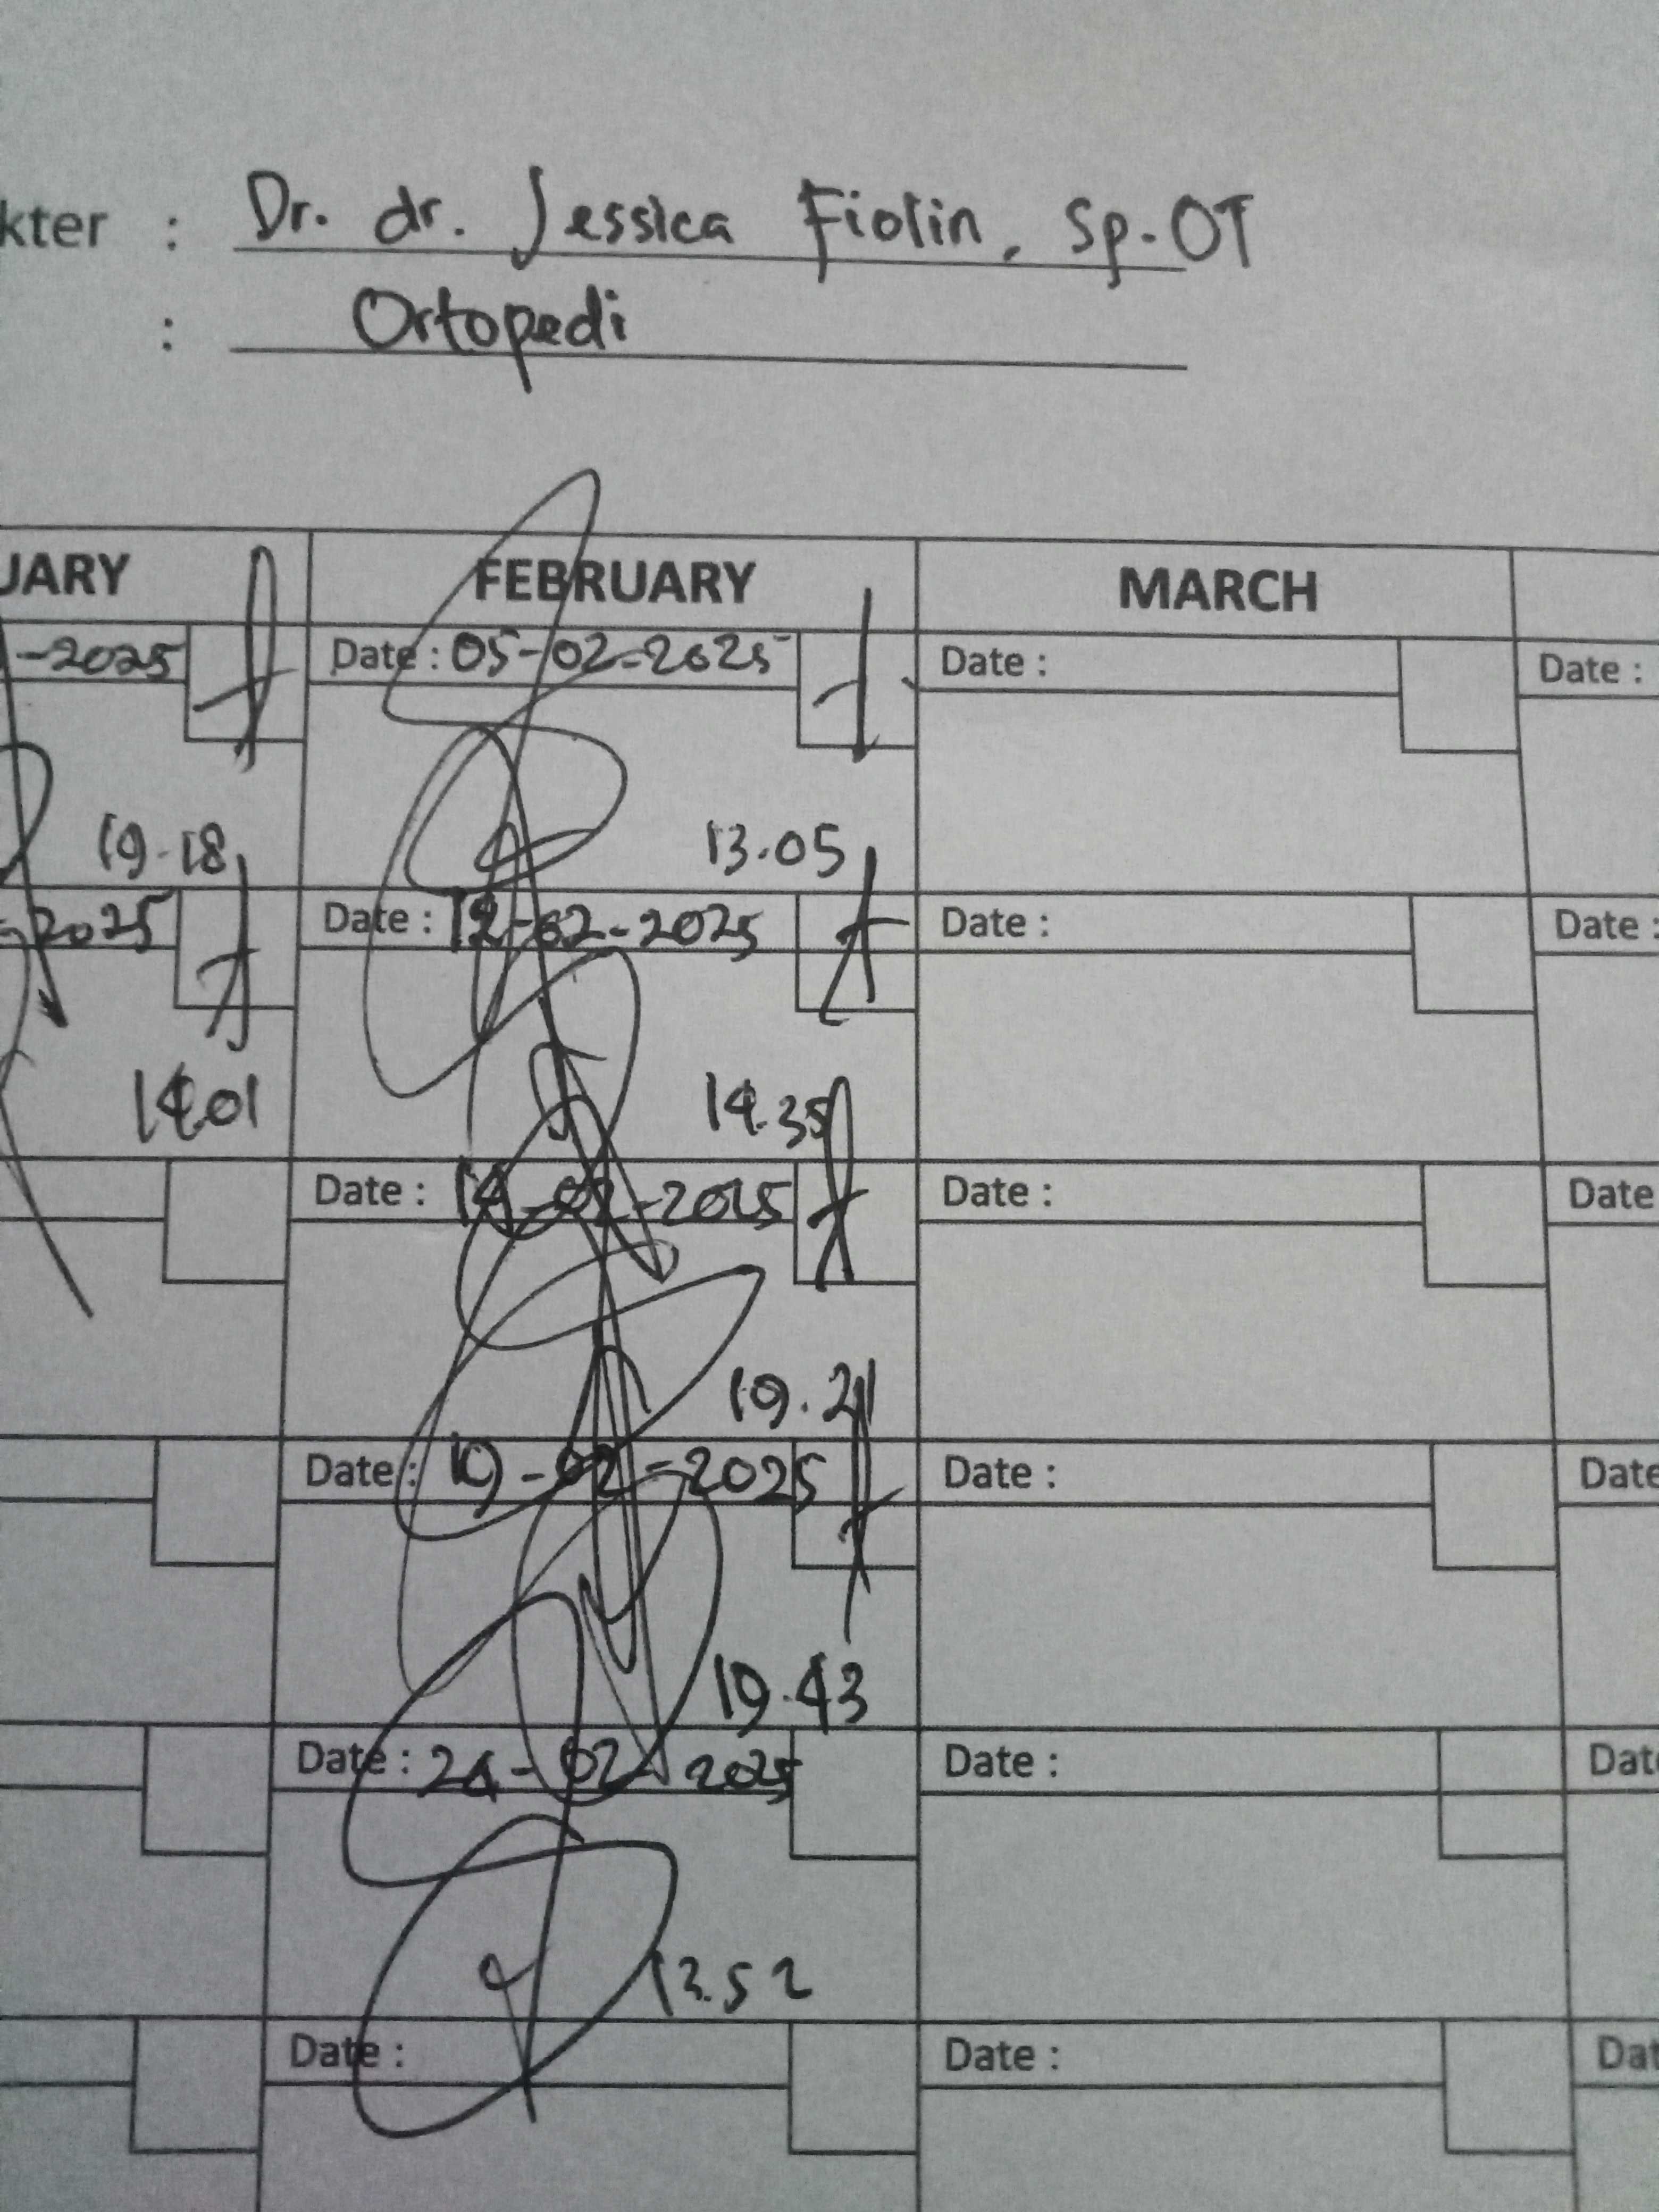 kter : Dr. dr. Jessica Fiolin, Sp.OT
: Ortopedi
UARY FEBRUARY MARCH
-2025 Date : 05-02-2025 Date : Date :
19.18 13.05
-2025 Date : 12-02-2025 Date : Date :
14.01 14.35
Date : 14-02-2025 Date : Date
19.21
Date : 19-02-2025 Date : Date
19.43
Date : 24-02-2025 Date : Date
13.52
Date : Date : Dat